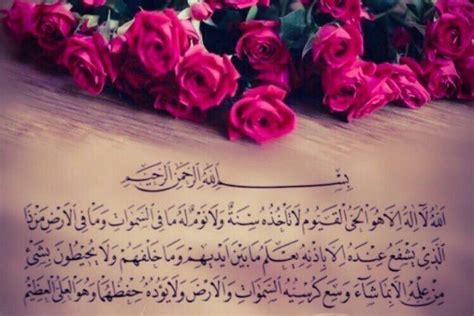 بِسْمِ اللَّهِ الرَّحْمَنِ الرَّحِيمِ
اللَّهُ لَا إِلَهَ إِلَّا هُوَ الْحَيُّ الْقَيُّومُ لَا تَأْخُذُهُ سِنَةٌ وَلَا نَوْمٌ لَهُ مَا فِي السَّمَوَاتِ وَمَا فِي الْأَرْضِ مَنْ ذَا
الَّذِي يَشْفَعُ عِنْدَهُ إِلَّا بِإِذْنِهِ يَعْلَمُ مَا بَيْنَ أَيْدِيهِمْ وَمَا خَلْفَهُمْ وَلَا يُحِيطُونَ بِشَيْءٍ
مِنْ عِلْمِهِ إِلَّا بِمَا شَاءَ وَسِعَ كُرْسِيُّهُ السَّمَوَاتِ وَالْأَرْضَ وَلَا يَؤُدُهُ حِفْظُهُمَا وَهُوَ الْعَلِيُّ الْعَظِيمُ